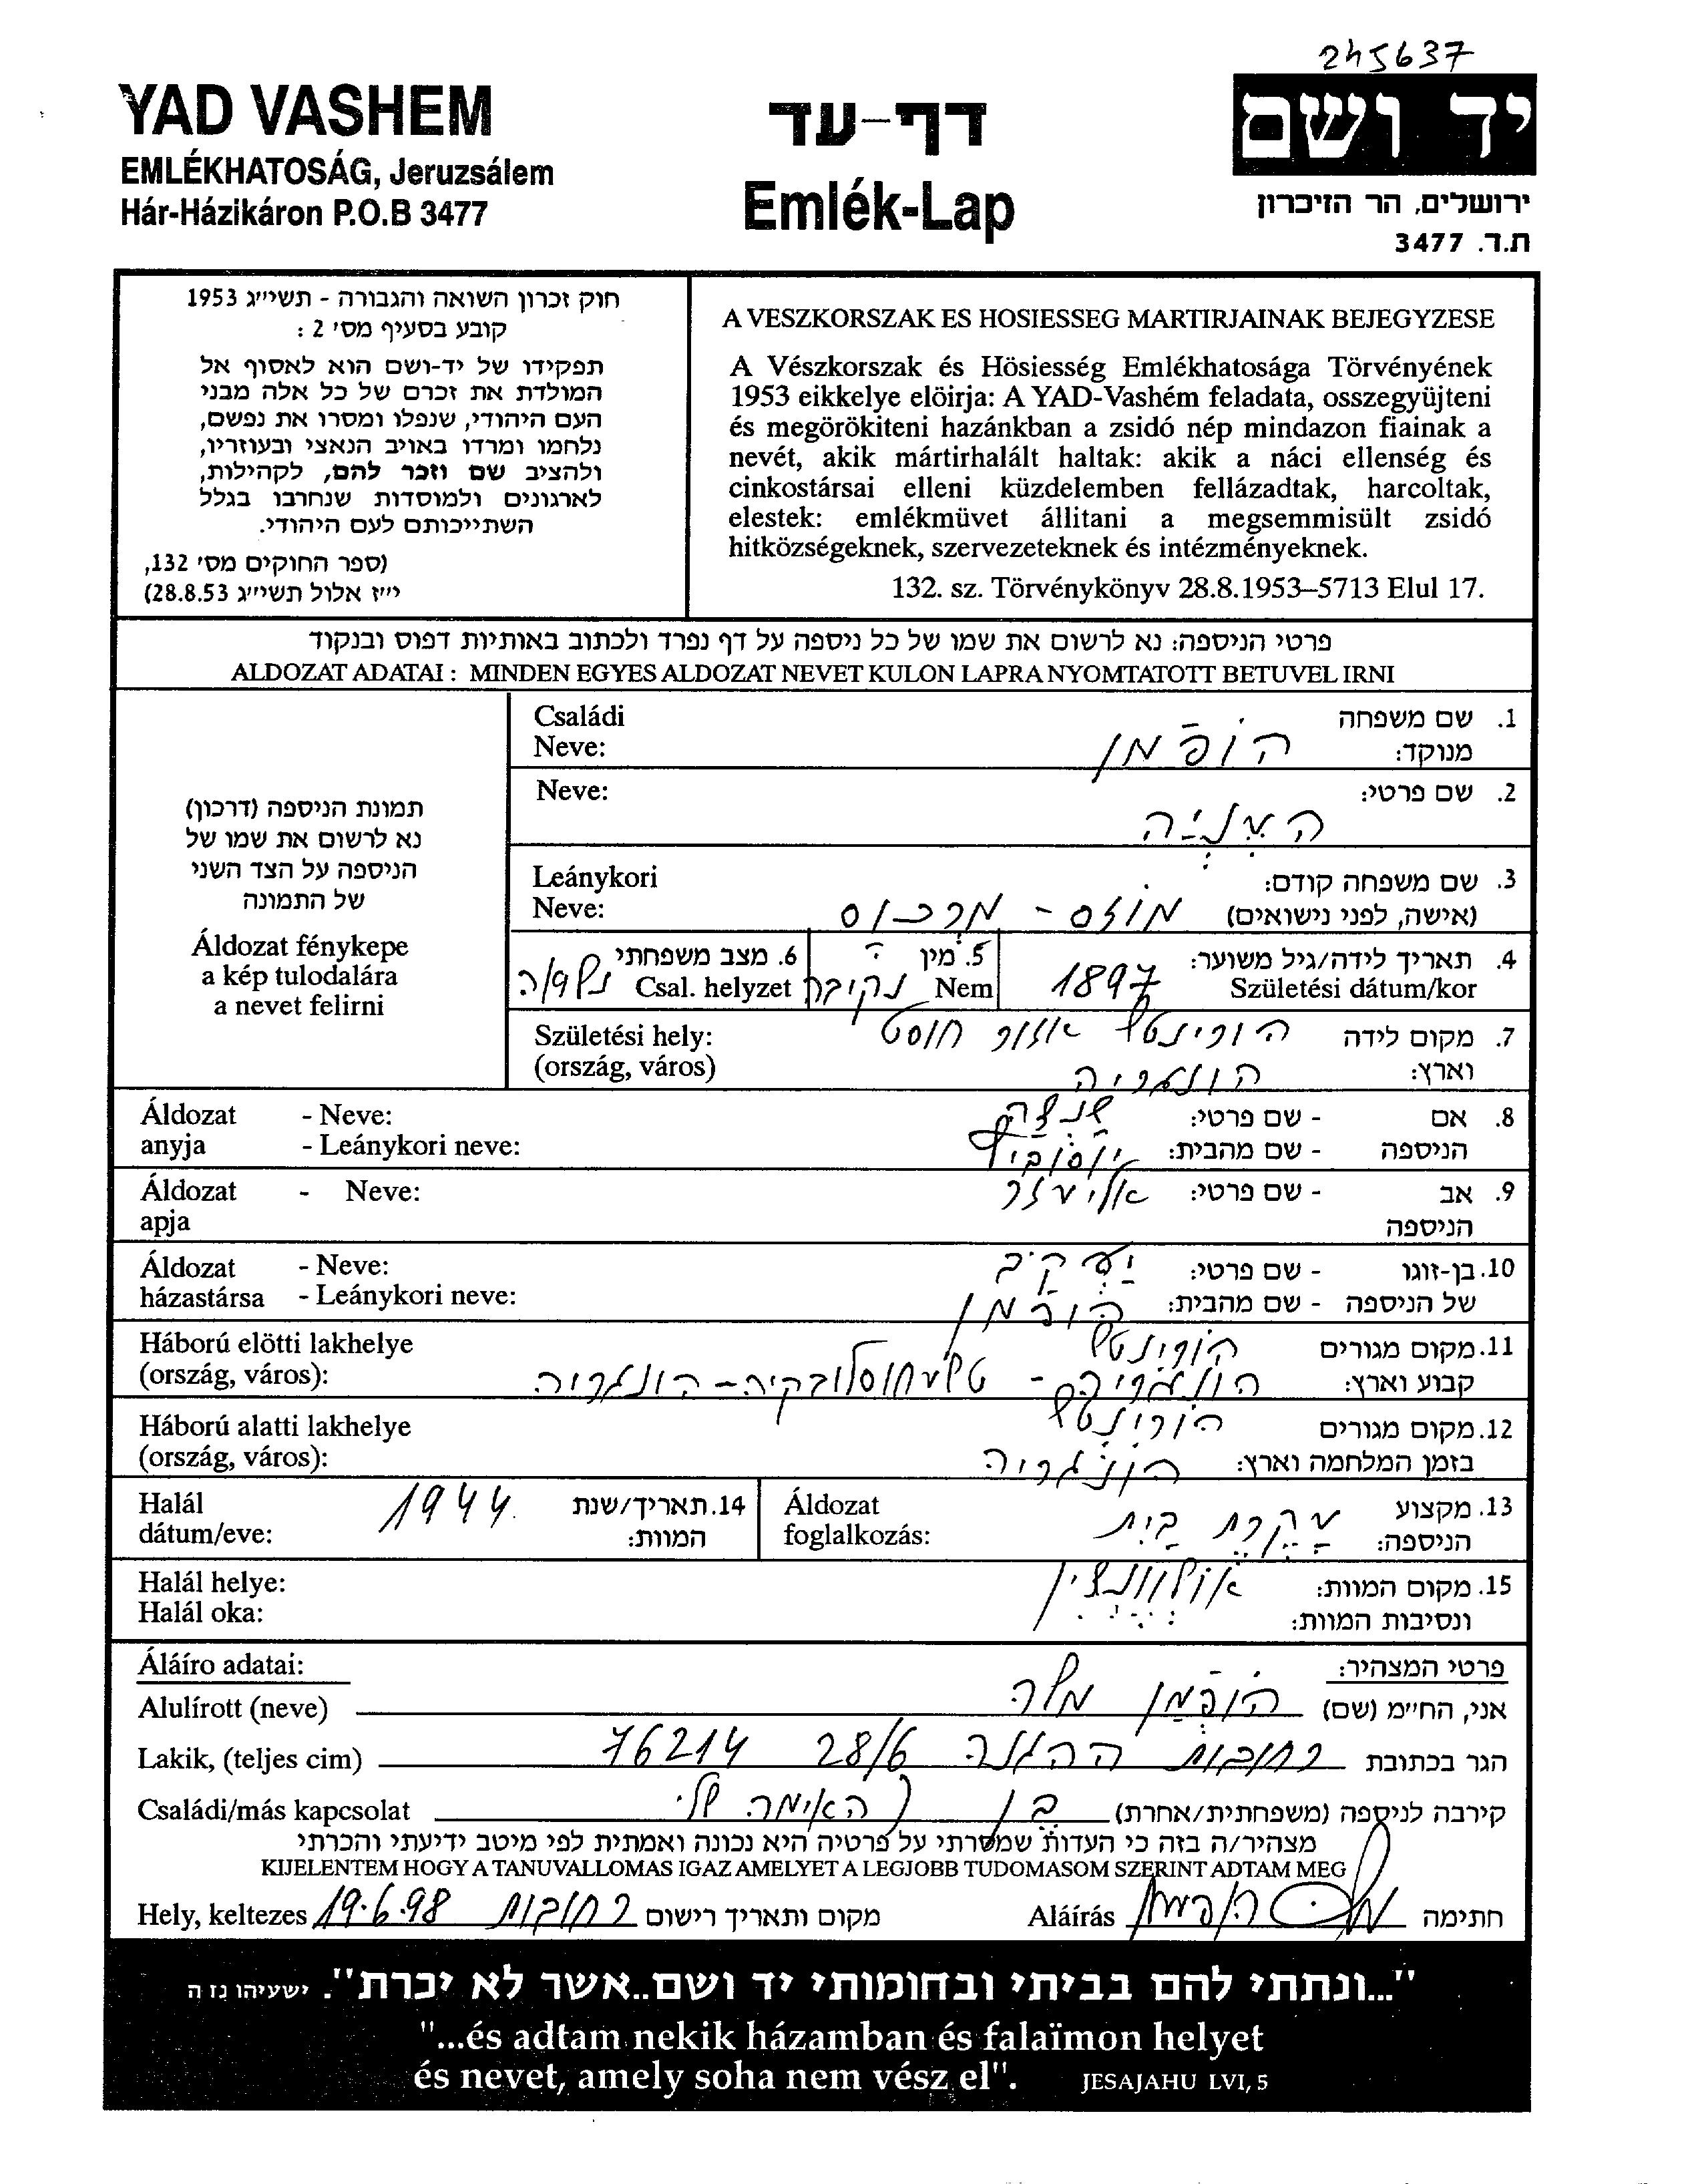 245637
YAD VASHEM
EMLÉKHATOSÁG, Jeruzsálem
Hár-Házikáron P.O.B 3477
דף-עד
Emlék-Lap
יד ושם
ירושלים, הר הזיכרון
ת.ד. 3477
חוק זכרון השואה והגבורה - תשי״ג 1953
קובע בסעיף מס׳ 2 :
תפקידו של יד-ושם הוא לאסוף אל
המולדת את זכרם של כל אלה מבני
העם היהודי, שנפלו ומסרו את נפשם,
נלחמו ומרדו באויב הנאצי ובעוזריו,
ולהציב שם וזכר להם, לקהילות,
לארגונים ולמוסדות שנחרבו בגלל
השתייכותם לעם היהודי.
(ספר החוקים מס׳ 132,
י״ז אלול תשי״ג 28.8.53)
A VESZKORSZAK ES HOSIESSEG MARTIRJAINAK BEJEGYZESE
A Vészkorszak és Hösiesség Emlékhatosága Törvényének
1953 eikkelye elöirja: A YAD-Vashém feladata, osszegyüjteni
és megörökiteni hazánkban a zsidó nép mindazon fiainak a
nevét, akik mártirhalált haltak: akik a náci ellenség és
cinkostársai elleni küzdelemben fellázadtak, harcoltak,
elestek: emlékmüvet állitani a megsemmisült zsidó
hitközségeknek, szervezeteknek és intézményeknek.
132. sz. Törvénykönyv 28.8.1953–5713 Elul 17.
פרטי הניספה: נא לרשום את שמו של כל ניספה על דף נפרד ולכתוב באותיות דפוס ובנקוד
ALDOZAT ADATAI : MINDEN EGYES ALDOZAT NEVET KULON LAPRA NYOMTATOTT BETUVEL IRNI
תמונת הניספה (דרכון)
נא לרשום את שמו של
הניספה על הצד השני
של התמונה
Áldozat fénykepe
a kép tulodalára
a nevet felirni
1. שם משפחה
מנוקד:
הוֹפְמַן
Családi
Neve:
2. שם פרטי:
Neve:
3. שם משפחה קודם:
(אישה, לפני נישואים)
מוזס - מרכוס
Leánykori
Neve:
4. תאריך לידה/גיל משוער:
Születési dátum/kor
1897
5. מין
Nem
נקיבה
6. מצב משפחתי
Csal. helyzet
נשואה
7. מקום לידה
וארץ:
הורינטש אזור חוסט
הונגריה
Születési hely:
(ország, város)
8. אם - שם פרטי:
הניספה - שם מהבית:
Áldozat - Neve:
anyja - Leánykori neve:
9. אב - שם פרטי: אליעזר
הניספה
Áldozat - Neve:
apja
10. בן-זוגו - שם פרטי: יעקב
של הניספה - שם מהבית: הופמן
Áldozat - Neve:
házastársa - Leánykori neve:
11. מקום מגורים הורינטש
קבוע וארץ:
טשעחוסלובקיה - הונגריה
Háború elötti lakhelye
(ország, város):
12. מקום מגורים הורינטש
בזמן המלחמה וארץ: הונגריה
Háború alatti lakhelye
(ország, város):
13. מקצוע
הניספה: עקרת בית
Áldozat
foglalkozás:
14. תאריך/שנת
המוות:
1944
Halál
dátum/eve:
15. מקום המוות:
ונסיבות המוות:
Halál helye:
Halál oka:
פרטי המצהיר:
Áláíro adatai:
אני, הח״מ (שם) הוֹפְמַן משה
Alulírott (neve)
הגר בכתובת רחובות ההגנה 28/6 76214
Lakik, (teljes cim)
קירבה לניספה (משפחתית/אחרת) בן (האימה שלי)
Családi/más kapcsolat
מצהיר/ה בזה כי העדות שמסרתי על פרטיה היא נכונה ואמתית לפי מיטב ידיעתי והכרתי
KIJELENTEM HOGY A TANUVALLOMAS IGAZ AMELYET A LEGJOBB TUDOMASOM SZERINT ADTAM MEG
Hely, keltezes 19.6.98 רחובות מקום ותאריך רישום
Aláírás חתימה
"...ונתתי להם בביתי ובחומותי יד ושם..אשר לא יכרת". ישעיהו נז ה
"...és adtam nekik házamban és falaïmon helyet
és nevet, amely soha nem vész el". JESAJAHU LVI, 5